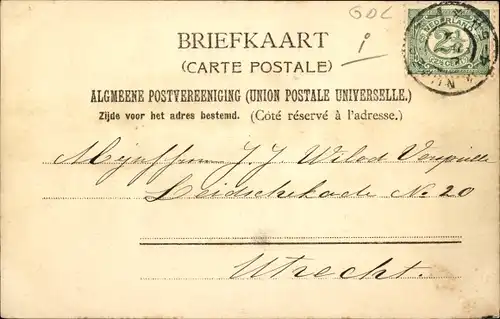 GDL
BRIEFKAART
i
(CARTE POSTALE)
ALGMEENE POSTVEREENIGING (UNION POSTALE UNIVERSELLE.)
Zijde voor het adres bestemd. (Côté réservé à l'adresse.)
NEDERLAND
2½
Mejuffrouw J. J. Wilod Versprille
Leidschekade No 20
Utrecht.